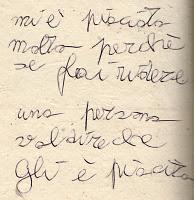 mi è piaciuta
molto perchè
se fai ridere
una persona
vol dire che
gli è piaciuta